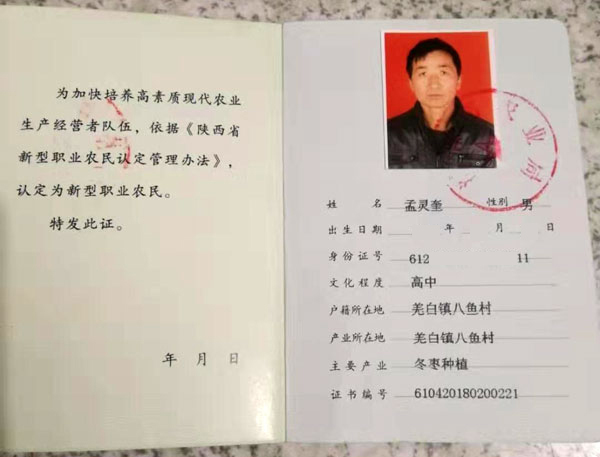 为加快培养高素质现代农业
生产经营者队伍，依据《陕西省
新型职业农民认定管理办法》，
认定为新型职业农民。
特发此证。
年 月 日
农业局
姓 名 孟灵奎 性别 男
出生日期 年 月 日
身份证号 612 11
文化程度 高中
户籍所在地 羌白镇八鱼村
产业所在地 羌白镇八鱼村
主要产业 冬枣种植
证书编号 610420180200221